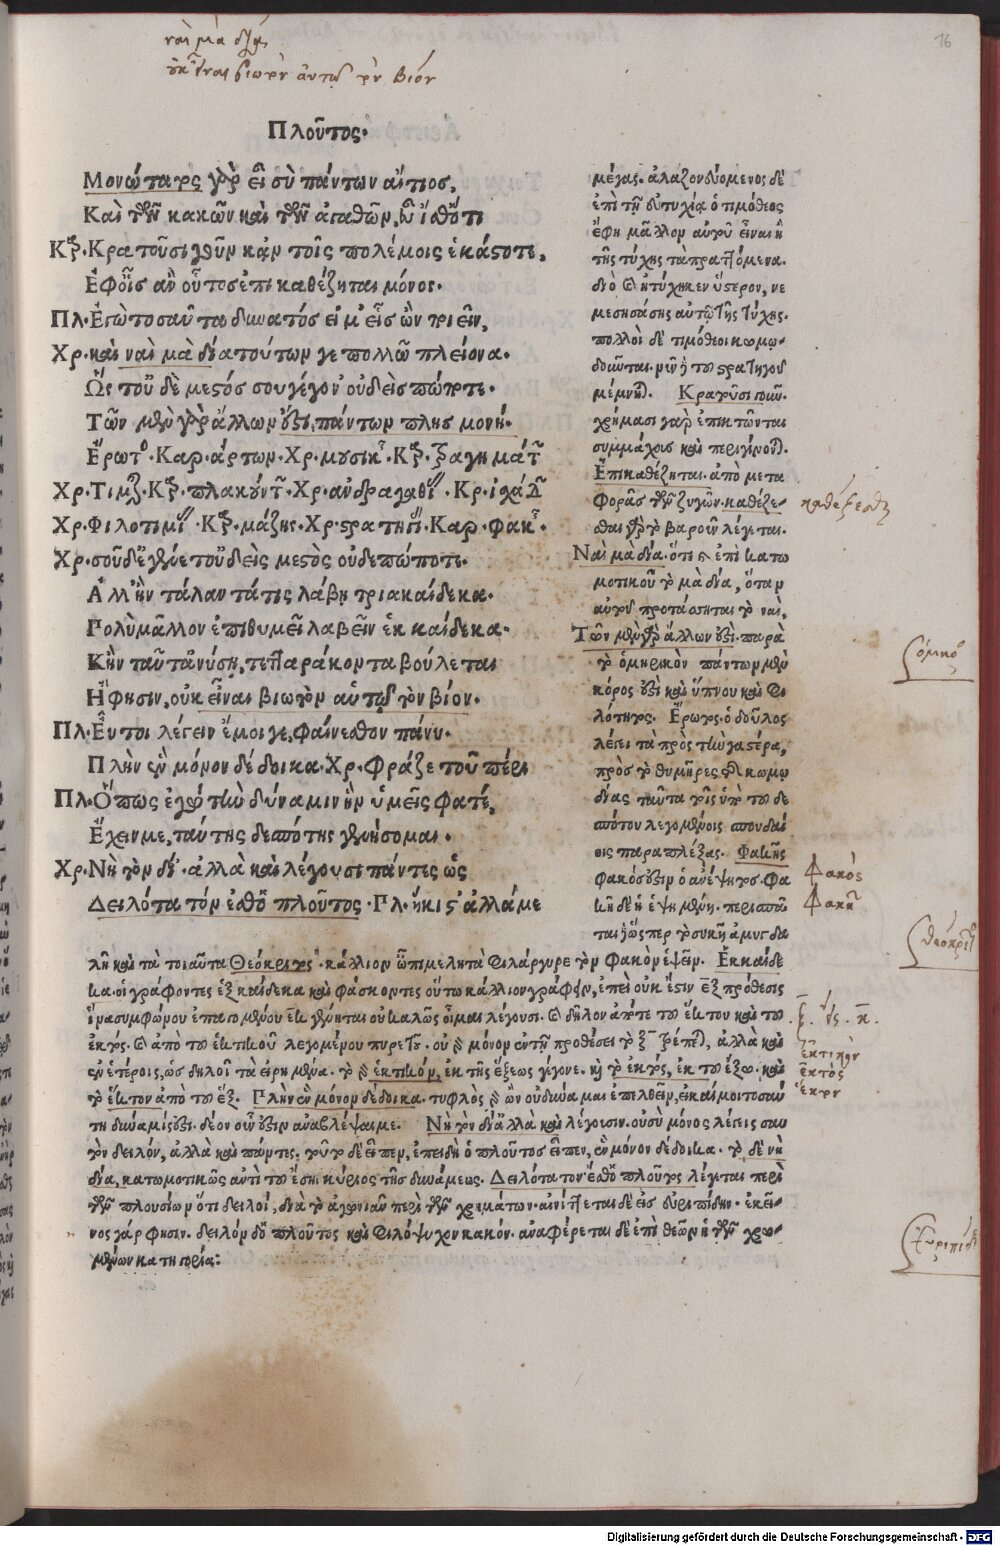 16
ναὶ μὰ δία
οὐκ εἶναι βιωτὸν αὑτῷ τὸν βίον
Πλοῦτος.
Μονώτατος γὰρ εἶ σὺ πάντων αἴτιος,
Καὶ τῶν κακῶν καὶ τῶν ἀγαθῶν, εὖ ἴσθ' ὅτι
Καρ. Κρατοῦσι γοῦν κἀν τοῖς πολέμοις ἑκάστοτε,
Ἐφ' οἷς ἂν οὗτος ἐπικαθέζηται μόνος.
Πλ. Ἐγὼ τοσαῦτα δυνατός εἰμ' εἷς ὢν ποιεῖν,
Χρ. καὶ ναὶ μὰ δία τούτων γε πολλῷ πλείονα.
Ὥς τ' οὐδὲ μεστός σου γέγον' οὐδεὶς πώποτε.
Τῶν μὲν γὰρ ἄλλων ἐστὶ πάντων πλησμονή.
Ἔρωτος. Καρ. ἄρτων. Χρ. μουσικῆς. Καρ. τραγημάτων
Χρ. Τιμῆς. Καρ. πλακούντων. Χρ. ἀνδραγαθίας. Κρ. ἰσχάδων
Χρ. Φιλοτιμίας. Καρ. μάζης. Χρ. στρατηγίας. Καρ. φακῆς.
Χρ. σοῦ δ' ἐγένετ' οὐδεὶς μεστὸς οὐδεπώποτε.
Ἀλλ' ἢν τάλαντά τις λάβῃ τριακαίδεκα.
Πολὺ μᾶλλον ἐπιθυμεῖ λαβεῖν ἑκκαίδεκα.
Κἢν ταῦτ' ἀνύσῃ, τετταράκοντα βούλεται
Ἤ φησιν, οὐκ εἶναι βιωτὸν αὑτῷ τὸν βίον.
Πλ. Εὖ τοι λέγειν ἔμοιγε, φαίνεσθον πάνυ.
Πλὴν ἓν μόνον δέδοικα. Χρ. Φράζε τοῦ πέρι
Πλ. Ὅπως ἐγὼ τὴν δύναμιν ἣν ὑμεῖς φατέ,
Ἔχειν με, ταύτης δεσπότης γενήσομαι.
Χρ. Νὴ τὸν δί'. ἀλλὰ καὶ λέγουσι πάντες ὡς
Δειλότατόν ἐσθ' ὁ πλοῦτος. Πλ. ἥκιστ' ἀλλά με
μέγας. ἀλαζονευόμενος δὲ
ἐπὶ τῇ εὐτυχίᾳ ὁ τιμόθεος
ἔφη μᾶλλον αὐτοῦ εἶναι ἢ
τῆς τύχης τὰ πραττόμενα.
διὸ καὶ ἠτύχησεν ὕστερον, νε
μεσησάσης αὐτῷ τῆς τύχης.
πολλοὶ δὲ τιμόθεοι κωμῳ
δοῦνται. νῦν δὲ τοῦ στρατηγοῦ
μέμνηται. Κρατοῦσι γοῦν.
χρήμασι γὰρ ἐπικτῶνται
συμμάχους καὶ περιγίνονται.
Ἐπικαθέζηται. ἀπὸ μετα
φορᾶς τῶν ζυγῶν. καθέζε-
σθαι γὰρ τὸ βαροῦν λέγεται.
Ναὶ μὰ δία. ὅτι καὶ ἐπὶ κατω
μοτικοῦ τὸ μὰ δία, ὅταν
αὐτοῦ προτάσσηται τὸ ναί,
Τῶν μὲν γὰρ ἄλλων ἐστί. παρὰ
τὸ ὁμηρικὸν πάντων μὲν
κόρος ἐστὶ καὶ ὕπνου καὶ φι
λότητος. Ἔρωτος. ὁ δοῦλος
λέγει τὰ πρὸς τὴν γαστέρα,
πρὸς τὸ θυμῆρες τῆς κωμῳ
δίας ταῦτα τοῖς ὑπὸ τοῦ δε
σπότου λεγομένοις σπουδαί
οις παραπλέξας. Φακῆς
φακός ἐστιν ὁ ἀνέψητος. φα
κῆ δὲ ἡ ἑψημένη. περισπᾶ
ται ὥσπερ τὸ συκῆ ἀμυγδα
λῆ καὶ τὰ τοιαῦτα Θεόκριτος. κάλλιον ὦ πιμελητὰ φιλάργυρε τὸν φακὸν ἕψειν. Ἑκκαίδε
κα. οἱ γράφοντες ἑξκαίδεκα καὶ φάσκοντες οὕτω κάλλιον γράφειν, ἐπεὶ οὐκ ἔστιν ἓξ πρόθεσις
ἵνα συμφώνου ἐπαγομένου ἓκ γένηται οὐ καλῶς οἶμαι λέγουσι. καὶ δῆλον ἀπό τε τοῦ ἕκτου καὶ τοῦ
ἑκτός. καὶ ἀπὸ τοῦ ἑκτικοῦ λεγομένου πυρετοῦ. οὐ γὰρ μόνον ἐν τῇ προθέσει τὸ ξ τρέπεται, ἀλλὰ καὶ
ἐν ἑτέροις, ὡς δηλοῖ τὰ εἰρημένα. τὸ γὰρ ἑκτικόν, ἐκ τῆς ἕξεως γέγονε. καὶ τὸ ἐκτός, ἐκ τοῦ ἔξω. καὶ
τὸ ἕκτον ἀπὸ τοῦ ἕξ. Πλὴν ἓν μόνον δέδοικα. τυφλὸς γὰρ ὢν οὐ δύναμαι ἐπελθεῖν, εἰ καί μοι τοσαύ
τη δύναμίς ἐστι. δέον οὖν ἐστιν ἀναβλέψαι με. Νὴ τὸν δί' ἀλλὰ καὶ λέγουσιν. οὐ σὺ μόνος λέγεις σαυ
τὸν δειλόν, ἀλλὰ καὶ πάντες. τοῦτο δὲ εἶπεν, ἐπειδὴ ὁ πλοῦτος εἶπεν, ἓν μόνον δέδοικα. τὸ δὲ νὴ
δία, κατωμοτικῶς ἀντὶ τοῦ ἔσῃ κύριος τῆς δυνάμεως. Δειλότατον ἔσθ' ὁ πλοῦτος λέγεται περὶ
τῶν πλουσίων ὅτι δειλοί, διὰ τὸ ἀγωνιᾶν περὶ τῶν χρημάτων. αἰνίττεται δὲ εἰς εὐριπίδην. ἐκεῖ-
νος γάρ φησιν. δειλόν δ' ὁ πλοῦτος καὶ φιλόψυχον κακόν. ἀναφέρεται δὲ ἐπὶ θεῶν ἡ τῶν χρω-
μένων κατηγορία:
καθέζεσθαι
ὁμηρικὸν
Φακός
Φακῆ
θεόκριτος
ἑκτικόν
ἐκτός
ἕκτον
εὐριπίδης
Digitalisierung gefördert durch die Deutsche Forschungsgemeinschaft - DFG